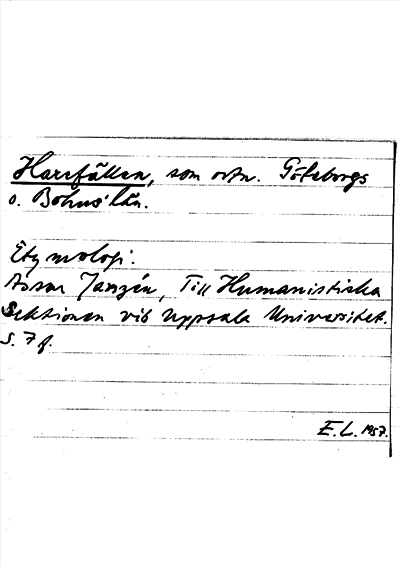 Harefällan, som ortn. Göteborgs
o. Bohus' län.
Etymologi:
Assar Janzén, Till Humanistiska
Sektionen vid Uppsala Universitet.
S. 7 f.
E. L. 1957.